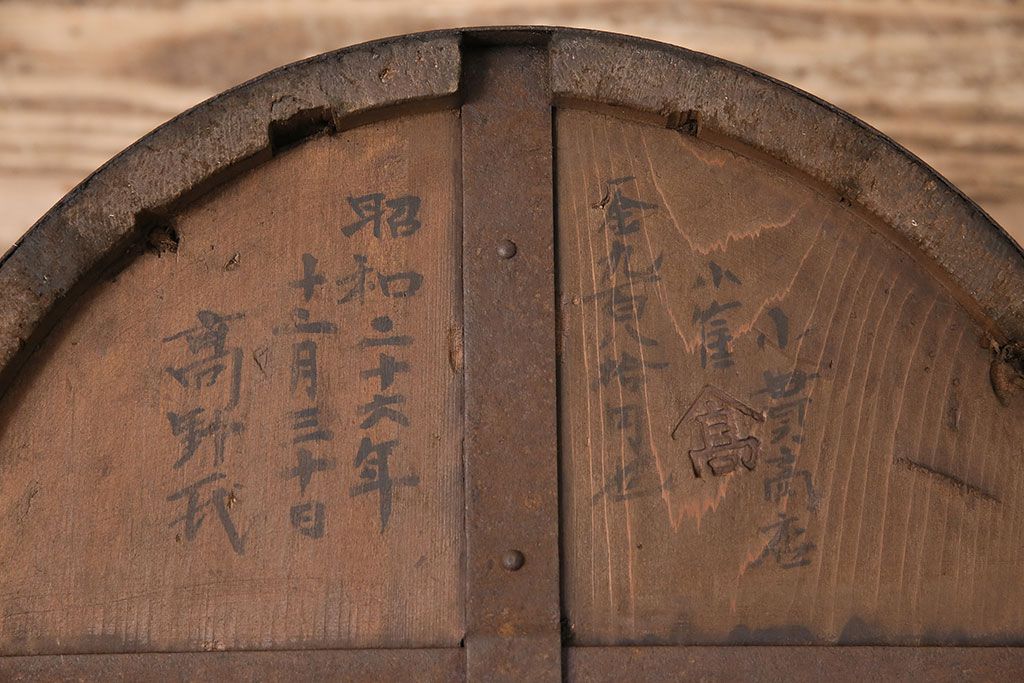 小貫商店
小隺
高
金九百八拾円也
昭和二十六年
十二月三十日
高野氏